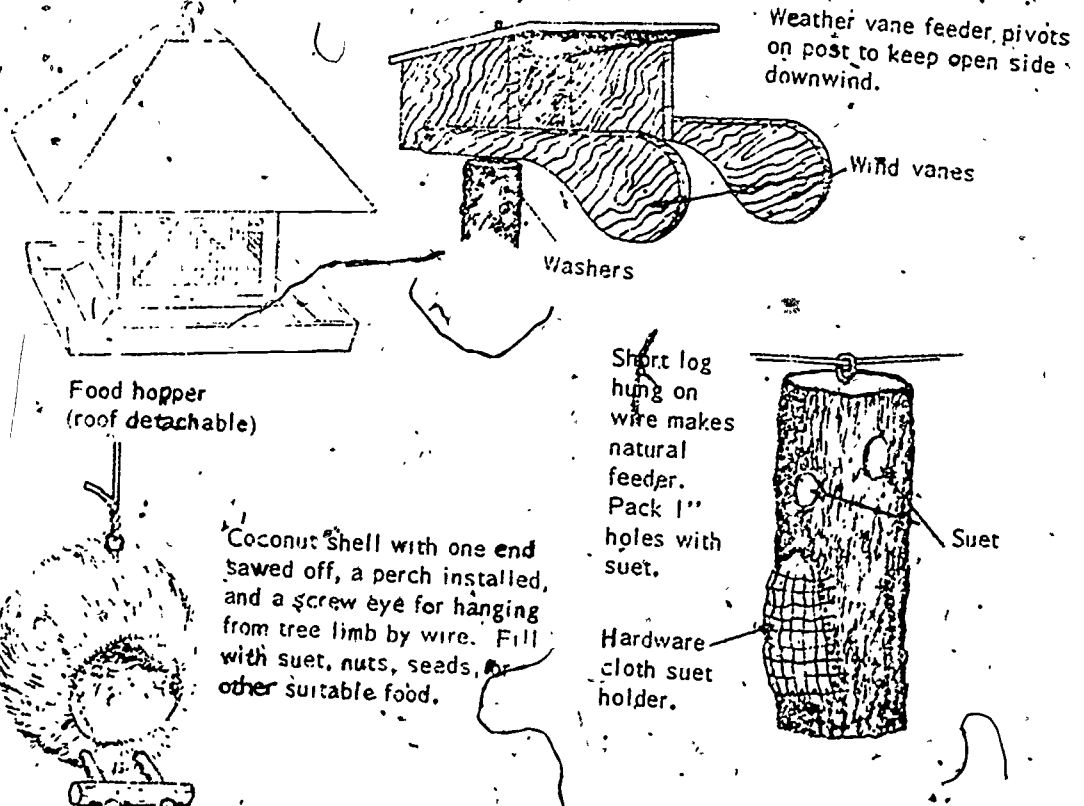 Weather vane feeder, pivots
on post to keep open side
downwind.
Wind vanes
Washers
Food hopper
(roof detachable)
Short log
hung on
wire makes
natural
feeder.
Pack 1"
holes with
suet.
Suet
Hardware
cloth suet
holder.
Coconut shell with one end
sawed off, a perch installed,
and a screw eye for hanging
from tree limb by wire. Fill
with suet, nuts, seeds, or
other suitable food.